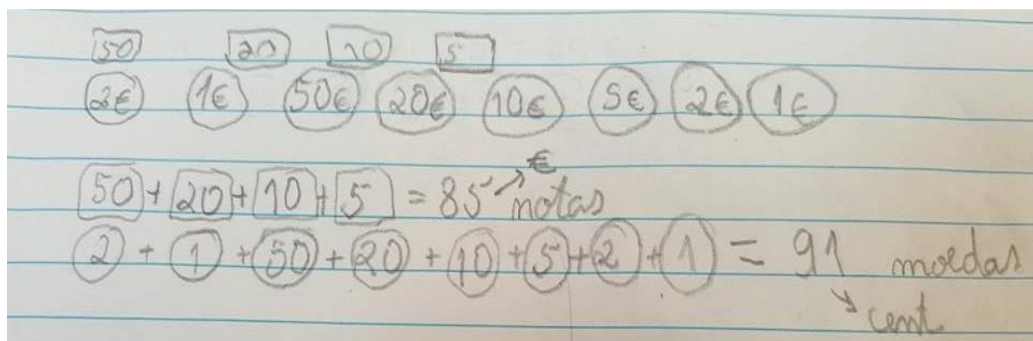 50 20 10 5
2€ 1€ 50€ 20€ 10€ 5€ 2€ 1€
50 + 20 + 10 + 5 = 85 → € notas
2 + 1 + 50 + 20 + 10 + 5 + 2 + 1 = 91 moedas
↘ cent